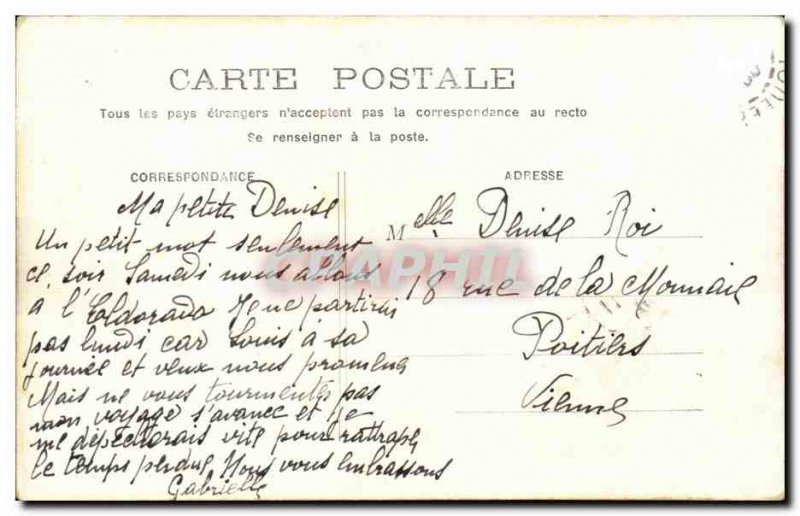 CARTE POSTALE
Tous les pays étrangers n'acceptent pas la correspondance au recto
Se renseigner à la poste.
CORRESPONDANCE
Ma petite Denise
Un petit mot seulement
ce soir Samedi nous allons
a l'Eldorado Je ne partirai
pas lundi car Louis à sa
journée et veux nous promener
Mais ne vous tourmentés pas
mon voyage s'avance et je
me dépècherais vite pour rattraper
le temps perdue Nous vous embrassons
Gabrielle
ADRESSE
Melle Denise Roi
18 rue de la Monnaie
Poitiers
Vienne
CRAPHIL